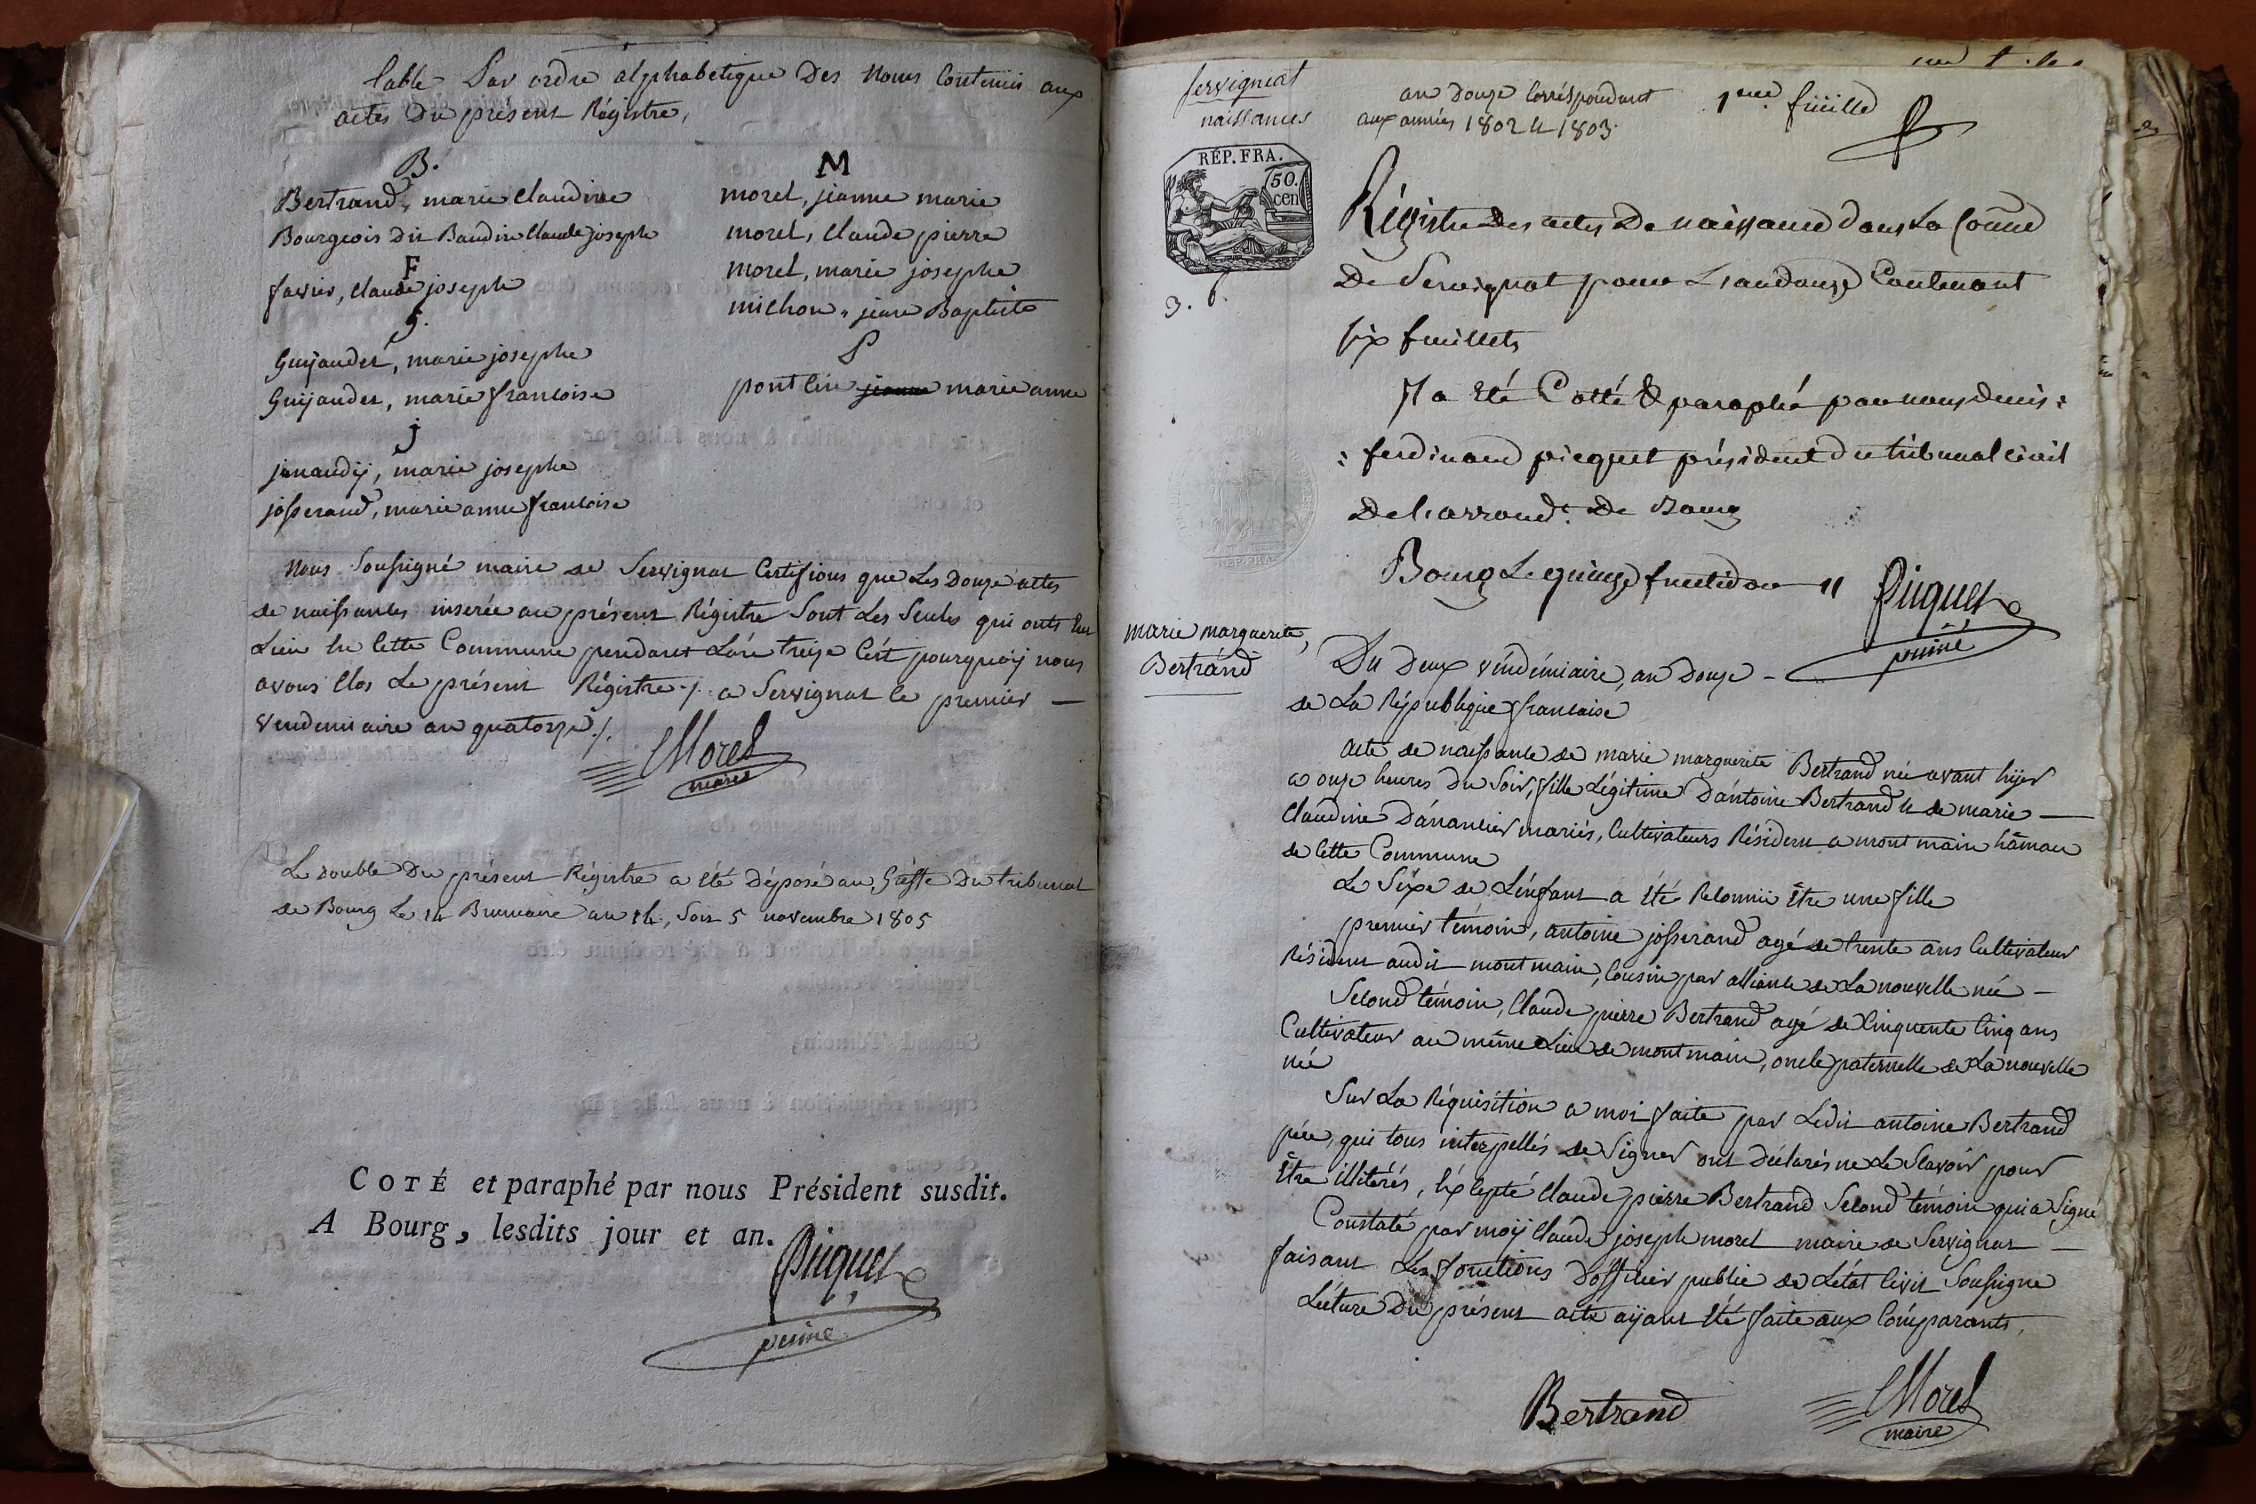 Table Par ordre alphabetique Des Noms Contenus aux
actes Du présent Régistre,
B.
Bertrand, marie Claudine
Bourgeois dit Baudin Claude joseph
F
favier, Claude joseph
G.
Guyaudet, marie josephe
Guyaudet, marie francoise
J
janaudy, marie josephe
josserand, marie anne francoise
M
morel, jeanne marie
morel, Claude pierre
morel, marie josephe
michon, jean Baptiste
P
jeanne marie anne
Nous Soussigné maire de Servignat Certifions que Les Douze actes
de naissances inserée au présent Régistre Sont Les Seules qui onts Eu
Lieu En Cette Commune pendant L'an treize C'est pourquoÿ nous
avons Clos Le présent Régistre ./. a Servignat le premier —
vendemiaire an quatorze ./.
Morel
maire
Le Double Du présent Régistre a été Déposé au Gréffe Du tribunal
de Bourg Le 14 Brumaire an 14, Soit 5 novembre 1805
COTÉ et paraphé par nous Président susdit.
A Bourg, lesdits jour et an.
Picquet
Servignat
naissances
an Douze Corréspondant
aux années 1802 et 1803.
1ere feüille
RÉP. FRA.
50.
cen
3.
Régistre des actes De naissance dans La Coũne
De Servignat pour L'an douze Contenant
six feuillets
Ia Eté Cotté & paraphé par nous denis =
= ferdinand picquet président du tribunal civil
De L'arrondt. De Bourg
Bourg Le quinze fructidor 11
Picquet
marie marguerite,
Bertránd
Du Deux véndémiaire, an Douze -
de La République francaise
acte de naissance de marie marguerite Bertrand née avant hÿer
a onze heures Du Soir, fille Légitime D'antoine Bertrand et de marie —
Claudine Dánancier mariés, Cultivateurs Résident a montmain hámau
de Cette Commune
Le Séxe de L'énfant a été Reconnu être une fille
premier témoin, antoine josserand agé de trente ans Cultivateur
Résident audit montmain, Cousin par alliance de La nouvelle née —
Second témoin, Claude pierre Bertrand agé de Cinquente Cinq ans
Cultivateur au même Lieu de montmain, oncle paternelle de La nouvelle
née
Sur La Réquisition a moi faite par Ledit antoine Bertrand
pére, qui tous interpellés de Signer ont Déclarés ne Le Scavoir pour
être illitérés, Excepté Claude pierre Bertrand Second témoin qui a Signé
Constaté par moÿ Claude joseph morel maire de Servignat —
faisant Les fonctions D'officier public de L'état Civil Soussigne
Lécture Du présent acte aÿant été faite aux Cómparants,
Bertrand
Morel
maire